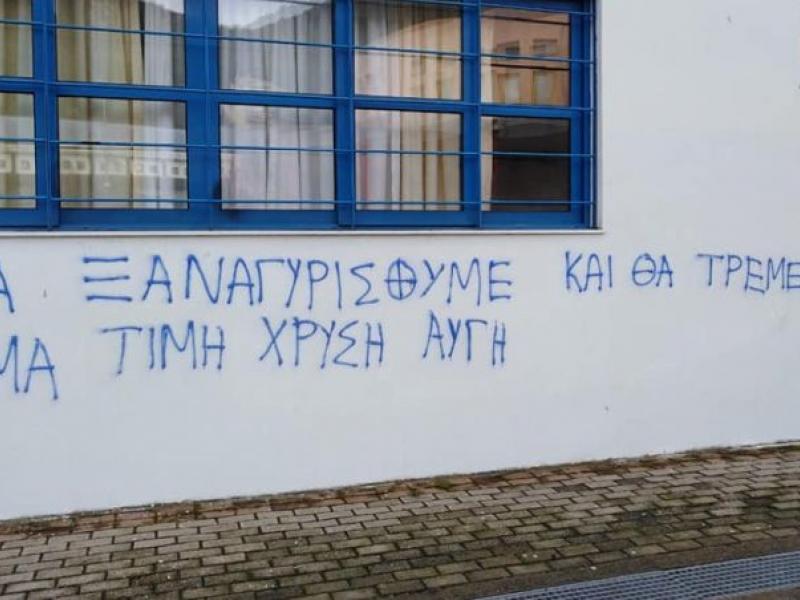 Α ΞΑΝΑΓΥΡΙΣΟΥΜΕ ΚΑΙ ΘΑ ΤΡΕΜΕ
ΜΑ ΤΙΜΗ ΧΡΥΣΗ ΑΥΓΗ